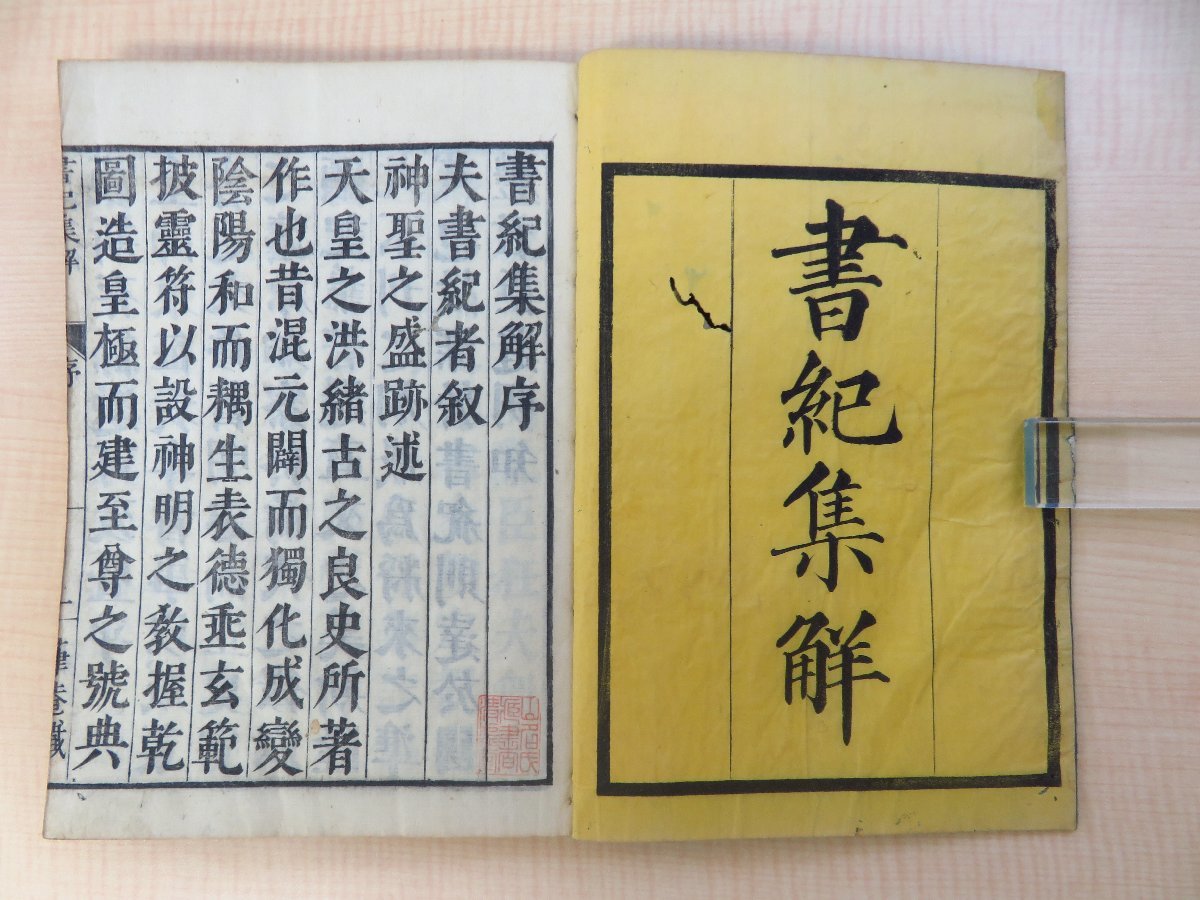 書紀集解
書紀集解序
夫書紀者叙
神聖之盛跡述
天皇之洪緒古之良史所著
作也昔混元闢而獨化成變
陰陽和而耦生表德垂玄範
披靈符以設神明之教握乾
圖造皇極而建至尊之號典
書紀集解 序 一